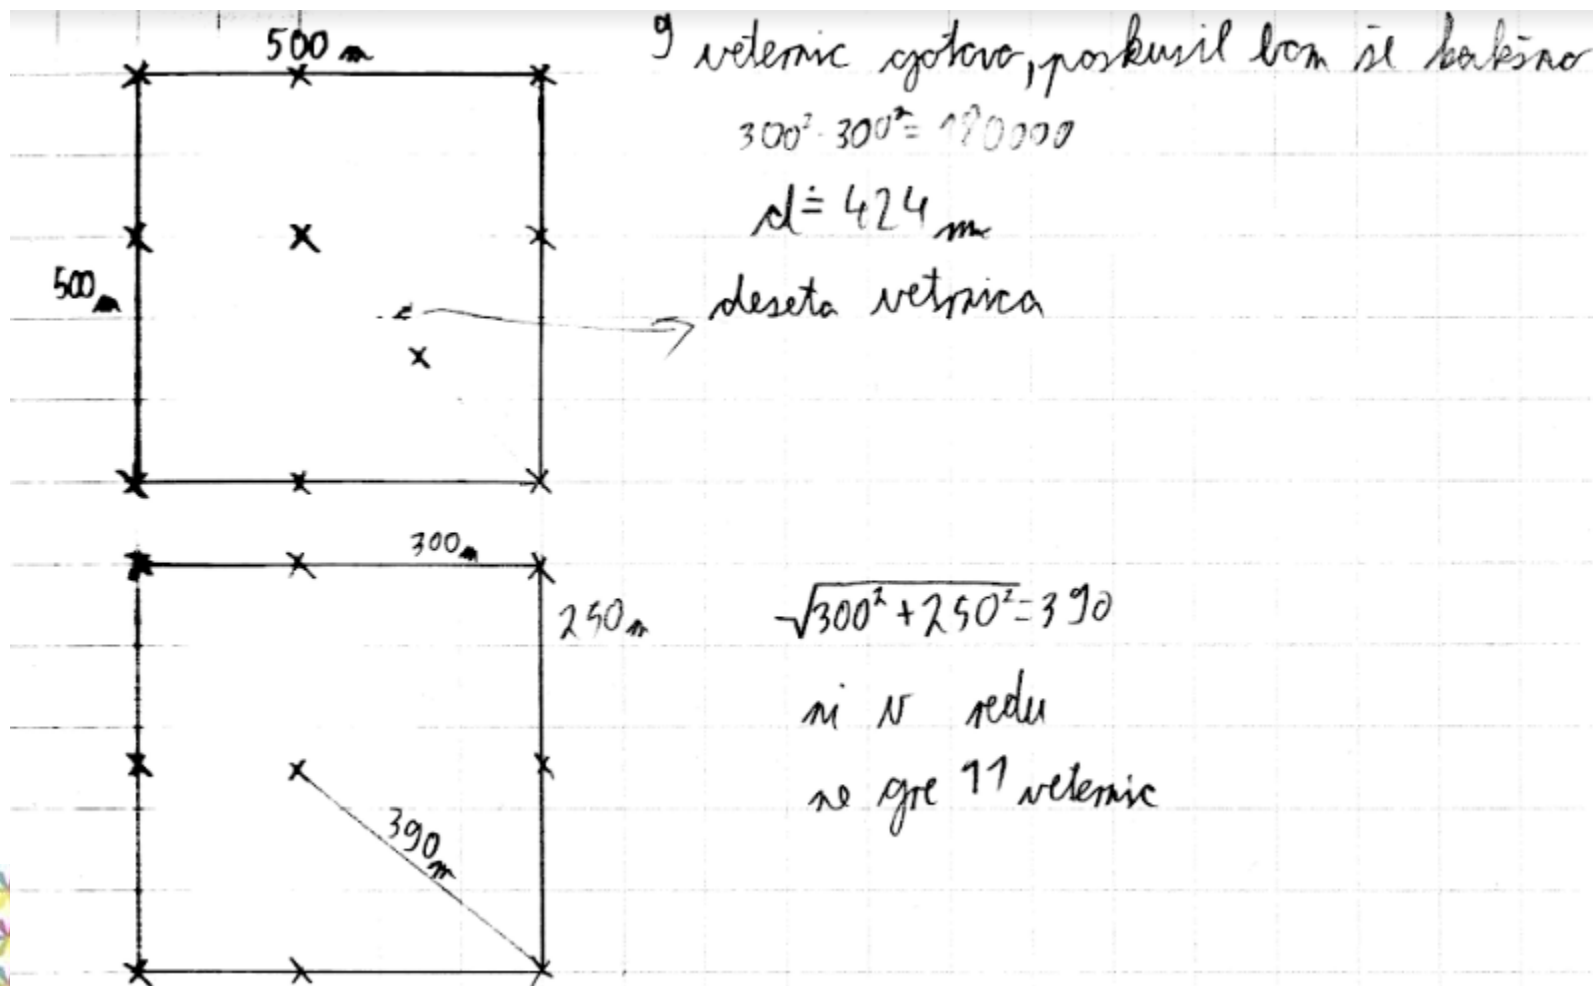 500 m
9 veternic gotovo, poskusil bom še kakšno
300² · 300² = 180000
d ≐ 424 m
500 m
deseta vetrnica
300 m
250 m
√300² + 250² = 390
ni v redu
ne gre 11 veternic
390 m